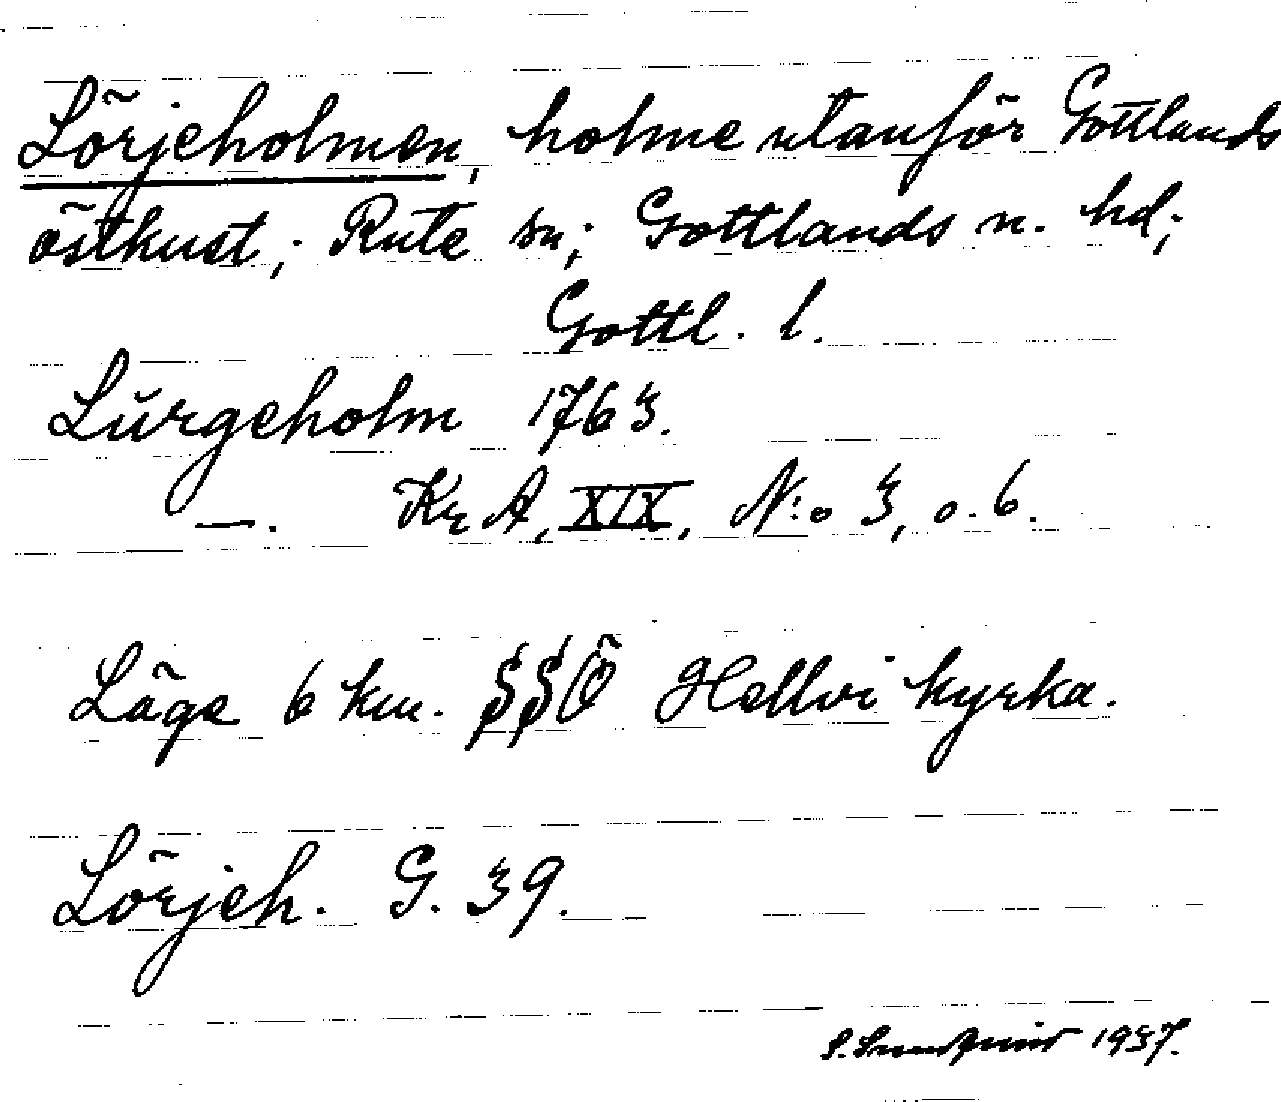 Lörjeholmen, holme utanför Gottlands
östkust; Rute sn; Gottlands n. hd;
Gottl. l.
Lürgeholm 1763.
—. Kr A, XIX, N:o 3, o. 6.
Läge 6 km. SSÖ Hellvi kyrka.
Lörjeh. G. 39.
S. Sundquist 1937.